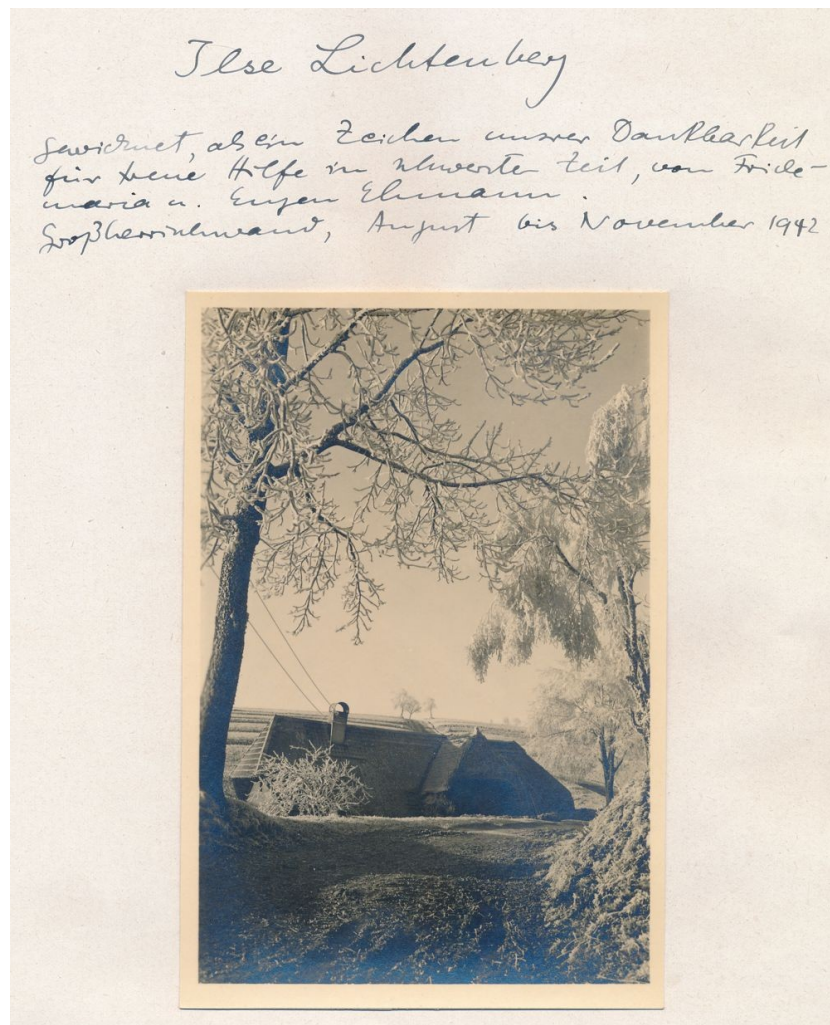 Ilse Lichtenberg
gewidmet, als ein Zeichen unsrer Dankbarkeit
für treue Hilfe in schwerster Zeit, von Friede-
maria u. Eugen Ehmann.
Großherrischwand, August bis November 1942